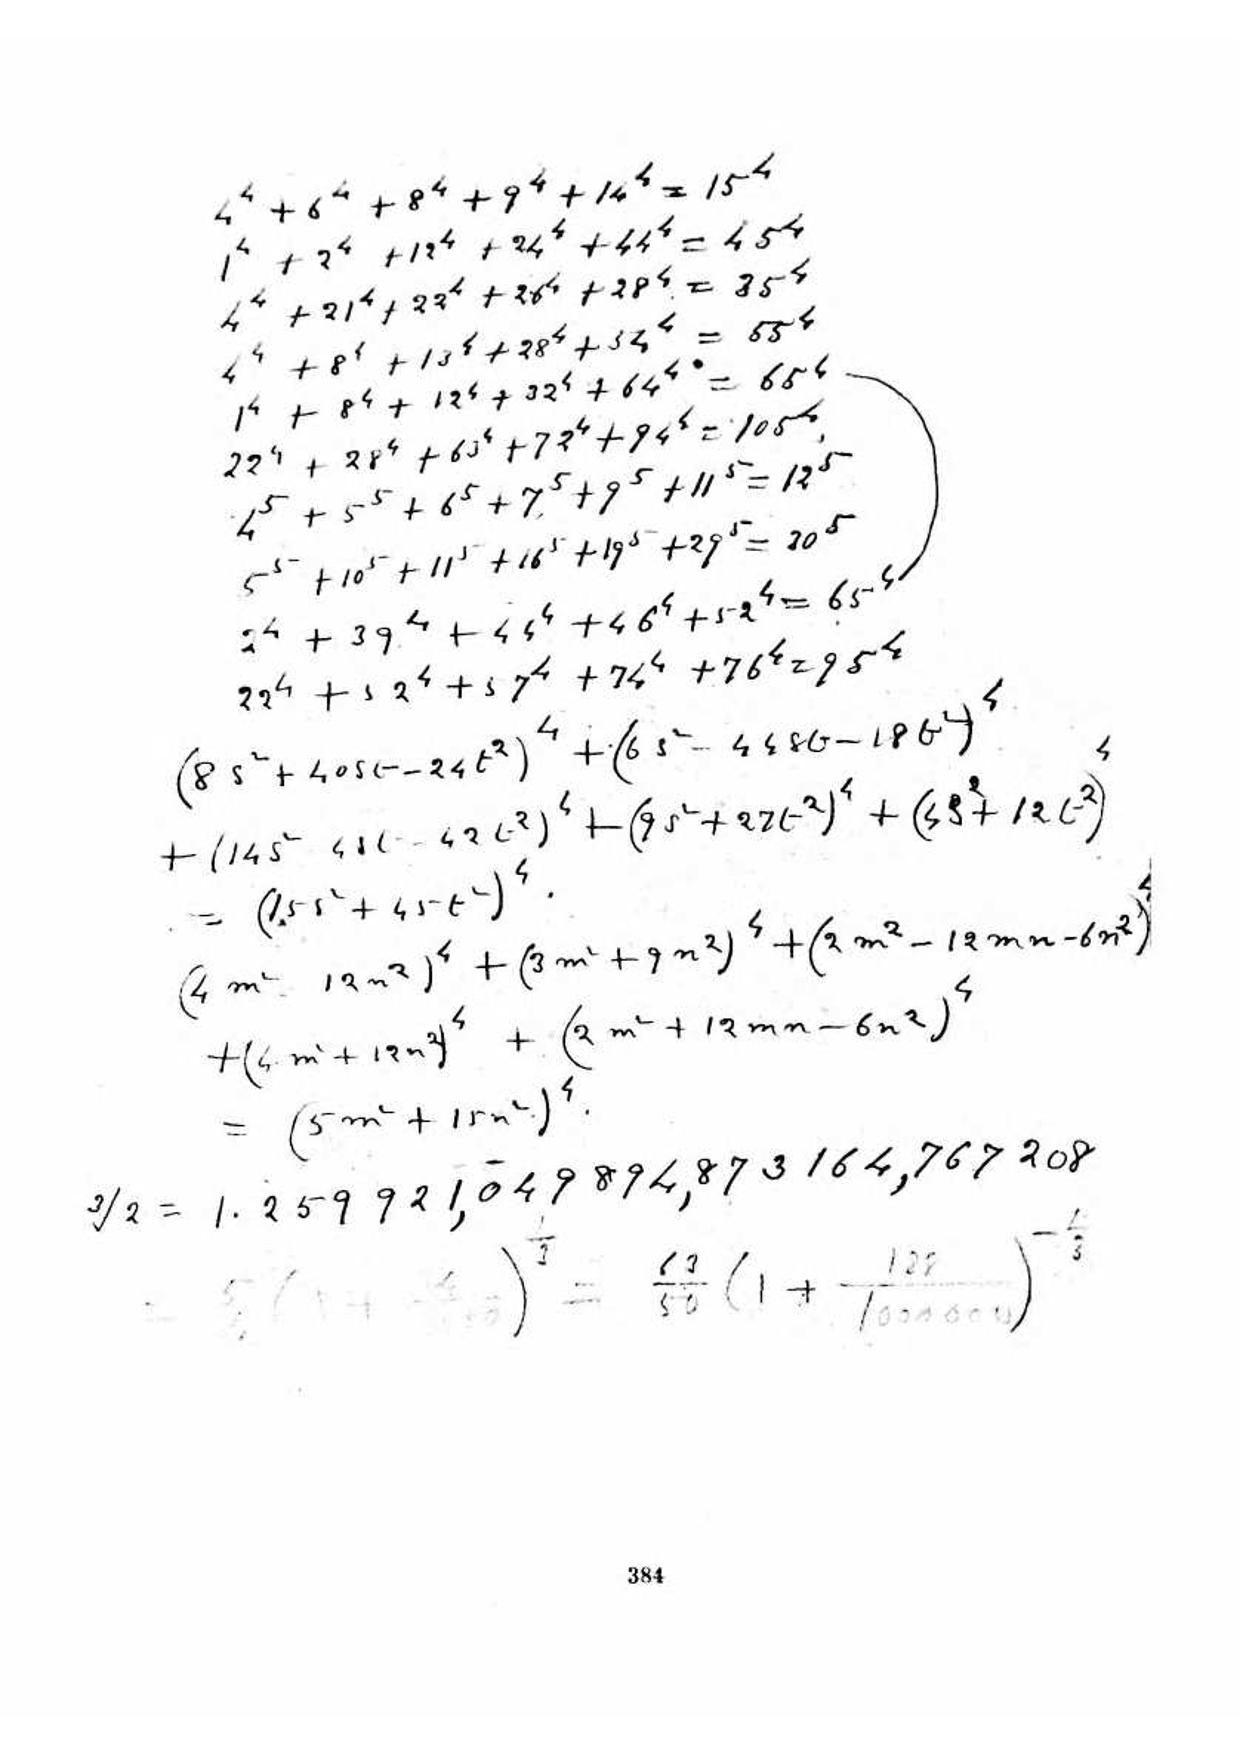 4⁴ + 6⁴ + 8⁴ + 9⁴ + 14⁴ = 15⁴
1⁴ + 2⁴ + 12⁴ + 24⁴ + 44⁴ = 45⁴
4⁴ + 21⁴ + 22⁴ + 26⁴ + 28⁴ = 35⁴
4⁴ + 8⁴ + 13⁴ + 28⁴ + 54⁴ = 55⁴
1⁴ + 8⁴ + 12⁴ + 32⁴ + 64⁴ = 65⁴
22⁴ + 28⁴ + 63⁴ + 72⁴ + 94⁴ = 105⁴
4⁵ + 5⁵ + 6⁵ + 7⁵ + 9⁵ + 11⁵ = 12⁵
5⁵ + 10⁵ + 11⁵ + 16⁵ + 19⁵ + 29⁵ = 30⁵
2⁴ + 39⁴ + 44⁴ + 46⁴ + 52⁴ = 65⁴
22⁴ + 52⁴ + 57⁴ + 74⁴ + 76⁴ = 95⁴
(8s² + 40st − 24t²)⁴ + (6s² − 44st − 18t²)⁴
+ (14s² 4st − 42t²)⁴ + (9s² + 27t²)⁴ + (4s² + 12t²)⁴
= (15s² + 45t²)⁴.
(4m² 12n²)⁴ + (3m² + 9n²)⁴ + (2m² − 12mn − 6n²)⁴
+ (4m² + 12n²)⁴ + (2m² + 12mn − 6n²)⁴
= (5m² + 15n²)⁴.
∛2 = 1.259921,049894,873164,767208
= )^(1/3) = 63/50 (1 + 128/1000000)^(−1/3)
384